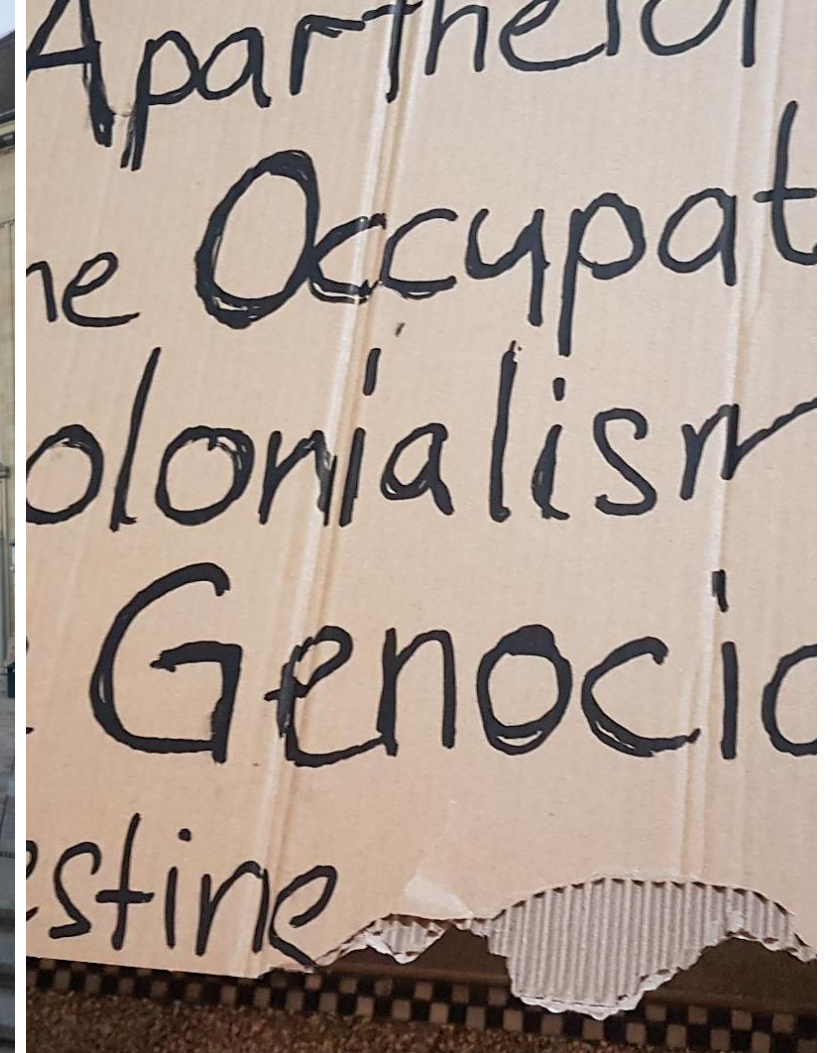 Apartheid
he Occupat
olonialism
Genocid
estine